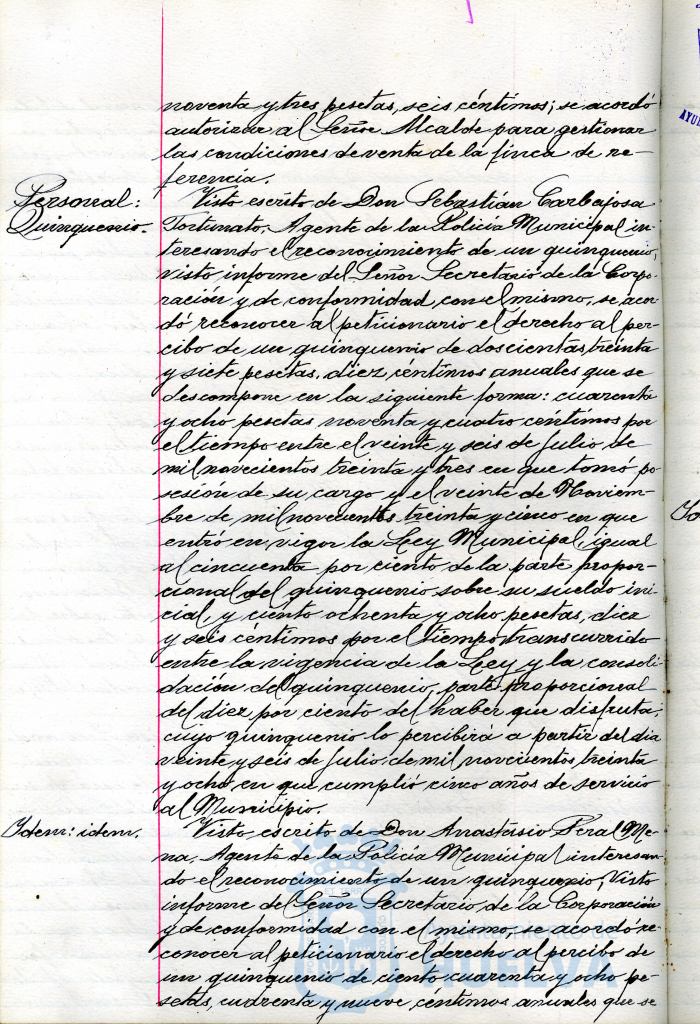 noventa y tres pesetas, seis céntimos; se acordó
autorizar al Señor Alcalde para gestionar
las condiciones de venta de la finca de re-
ferencia.
Personal:
Quinquenio.
Visto escrito de Don Sebastián Carbajosa
Fortunato, Agente de la Policía Municipal in-
teresando el reconocimiento de un quinquenio,
visto informe del Señor Secretario de la Corpo-
ración y de conformidad, con el mismo, se acor-
dó reconocer al peticionario el derecho al per-
cibo de un quinquenio de doscientas treinta
y siete pesetas, diez céntimos anuales que se
descompone en la siguiente forma: cuarenta
y ocho pesetas noventa y cuatro céntimos por
el tiempo entre el veinte y seis de Julio de
mil novecientos treinta y tres en que tomó po
sesión de su cargo y el veinte de Noviem-
bre de mil novecientos treinta y cinco en que
entró en vigor la Ley Municipal, igual
al cincuenta por ciento de la parte propor-
cional del quinquenio sobre su sueldo ini-
cial, y ciento ochenta y ocho pesetas, diez
y seis céntimos por el tiempo transcurrido
entre la vigencia de la Ley y la consoli-
dación del quinquenio, parte proporcional
del diez por ciento del haber que disfruta,
cuyo quinquenio lo percibirá a partir del dia
veinte y seis de Julio de mil novecientos treinta
y ocho en que cumplió cinco años de servicio
al Municipio.
Idem: idem.
Visto escrito de Don Anastasio Peral Me-
na, Agente de la Policía Municipal interesan-
do el reconocimiento de un quinquenio, Visto
informe del Señor Secretario de la Corporación
y de conformidad con el mismo, se acordó re-
conocer al peticionario el derecho al percibo de
un quinquenio de ciento cuarenta y ocho pe-
setas, cuarenta y nueve céntimos anuales que se
Ayuntamiento de
HUELVA